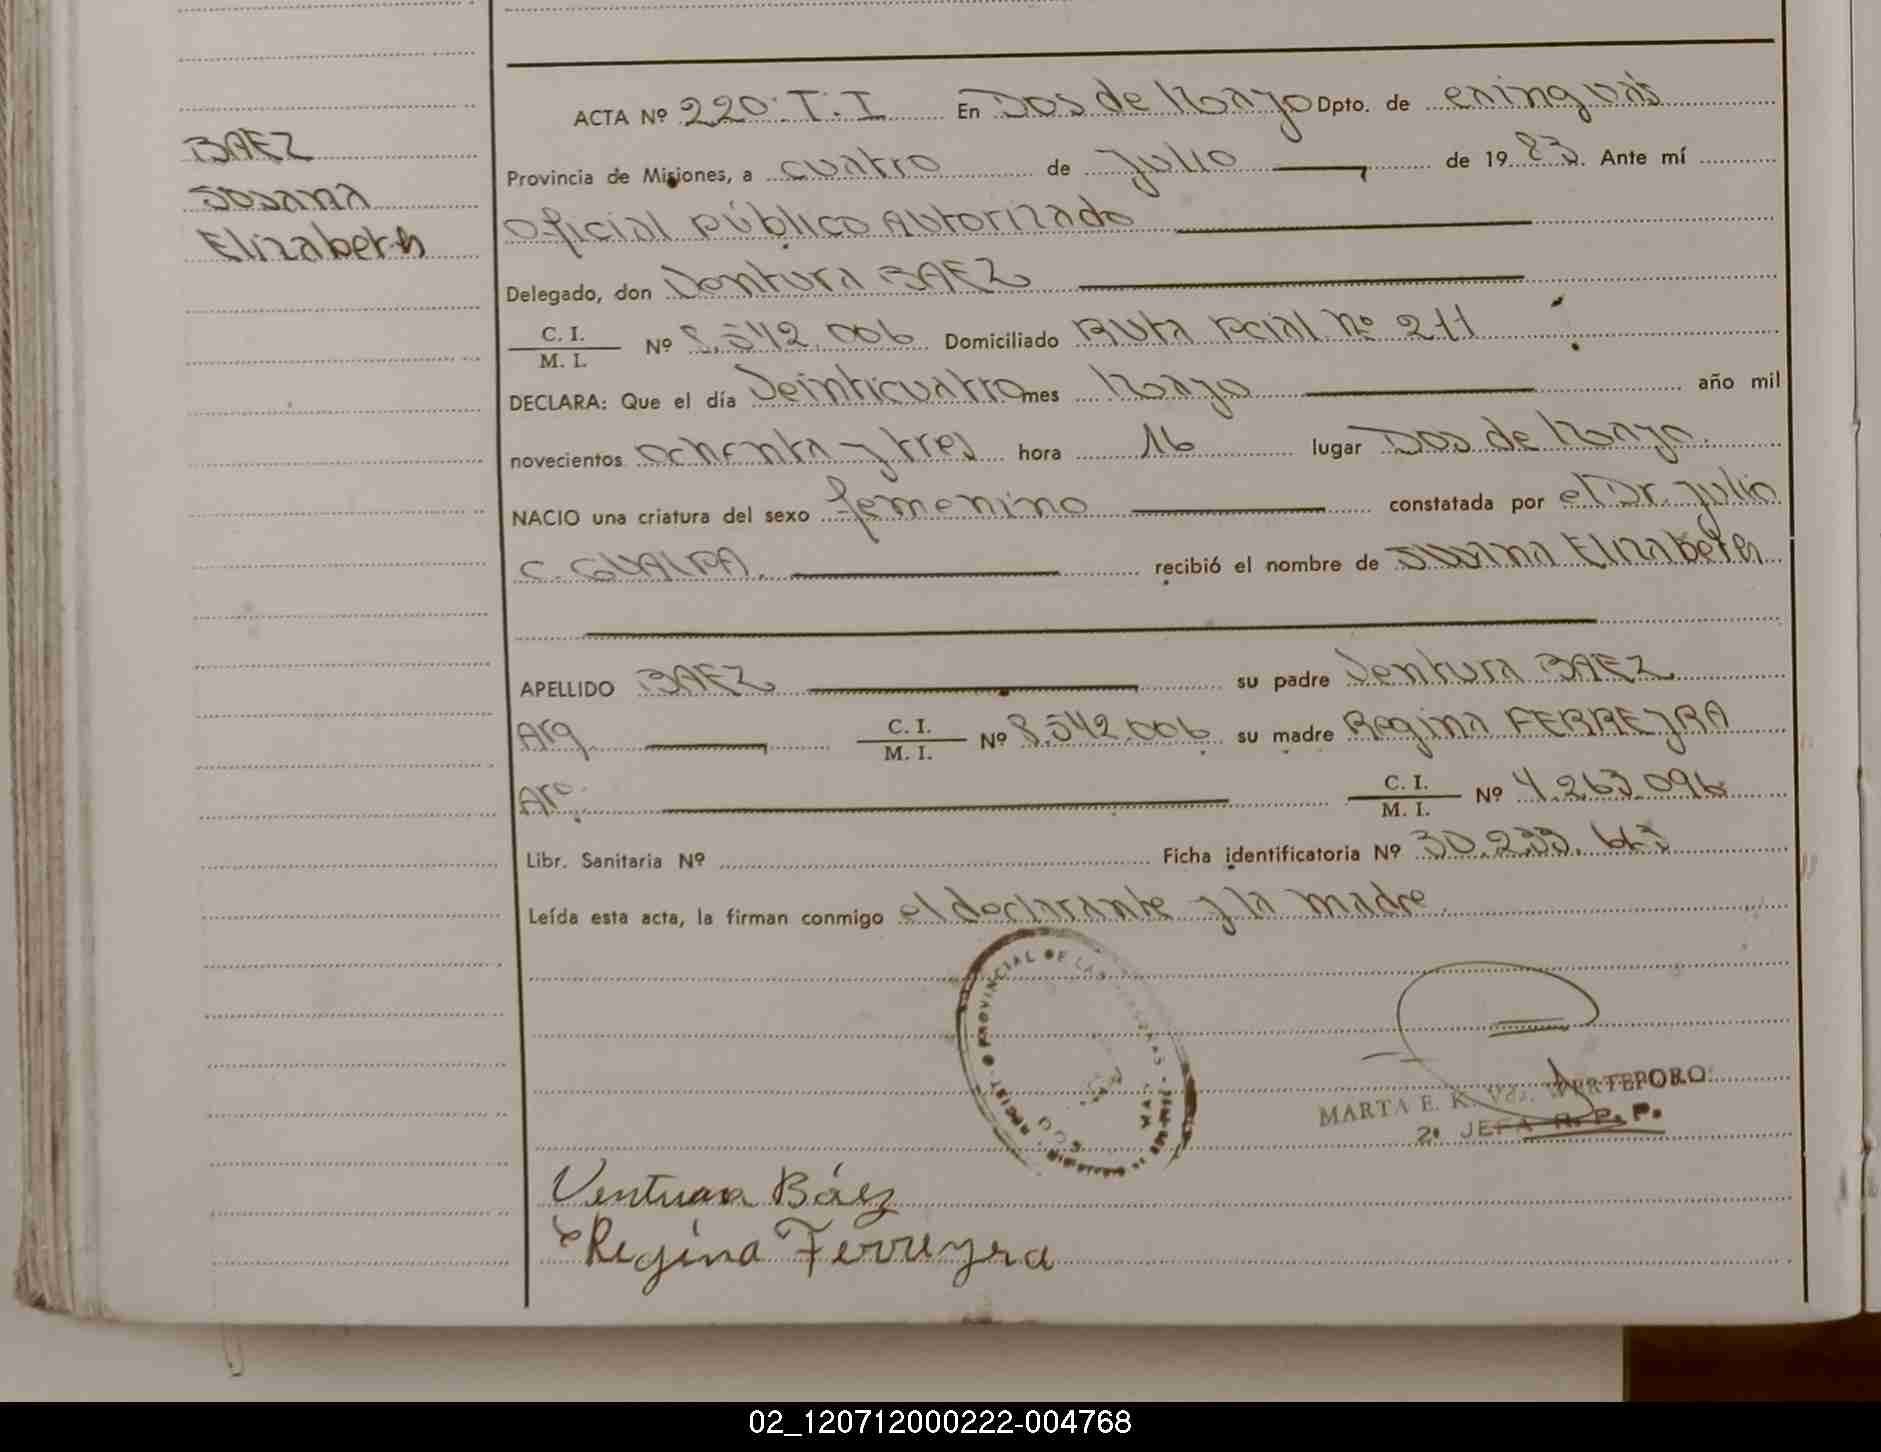 BAEZ
Susana
Elizabeth
ACTA Nº 220. T. I En Dos de Mayo Dpto. de Cainguás
Provincia de Misiones, a cuatro de Julio de 1983. Ante mí
Oficial Público Autorizado
Delegado, don Ventura BAEZ
C. I.
M. I. Nº 8.542.006 Domiciliado Ruta Pcial Nº 211
DECLARA: Que el día Veinticuatro mes Mayo año mil
novecientos ochenta y tres hora 16 lugar Dos de Mayo.
NACIO una criatura del sexo femenino constatada por el Dr. Julio
C. GUALPA. recibió el nombre de Susana Elizabeth
APELLIDO BAEZ su padre Ventura BAEZ
Arg. C. I.
M. I. Nº 8.542.006 su madre Regina FERREYRA
Arg. C. I.
M. I. Nº 4.263.096
Libr. Sanitaria Nº Ficha identificatoria Nº
Leída esta acta, la firman conmigo el declarante y la madre.
PROVINCIAL DE LAS
MARTA E. K. Vda. WERTEPORO
2ª JEFA R. P. P.
Ventura Báez
Regina Ferreyra
02_120712000222-004768